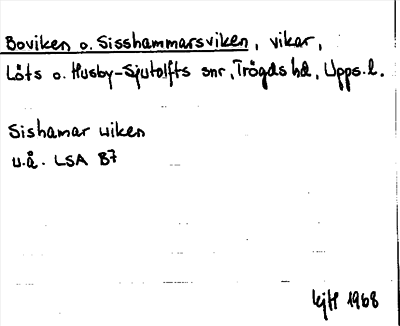 Boviken o. Sisshammarsviken, vikar,
Löts o. Husby-Sjutolfts snr, Trögds hd, Upps. l.
Sishamar wiken
u.å. LSA B7
1968